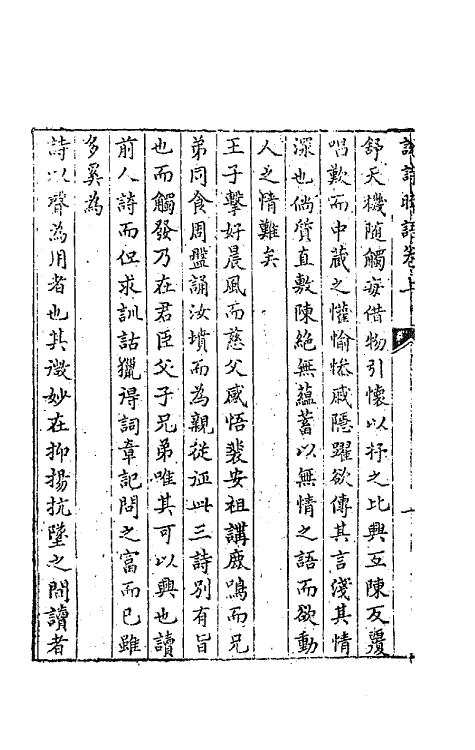 說詩晬語卷上
一
舒天機隨觸每借物引懷以抒之比興互陳反覆
唱歎而中藏之懽愉慘戚隱躍欲傳其言淺其情
深也倘質直敷陳絕無蘊蓄以無情之語而欲動
人之情難矣
王子擊好晨風而慈父感悟裴安祖講鹿鳴而兄
弟同食周盤誦汝墳而為親從征此三詩別有旨
也而觸發乃在君臣父子兄弟唯其可以興也讀
前人詩而但求訓詁獵得詞章記問之富而已雖
多奚為
詩以聲為用者也其微妙在抑揚抗墜之間讀者